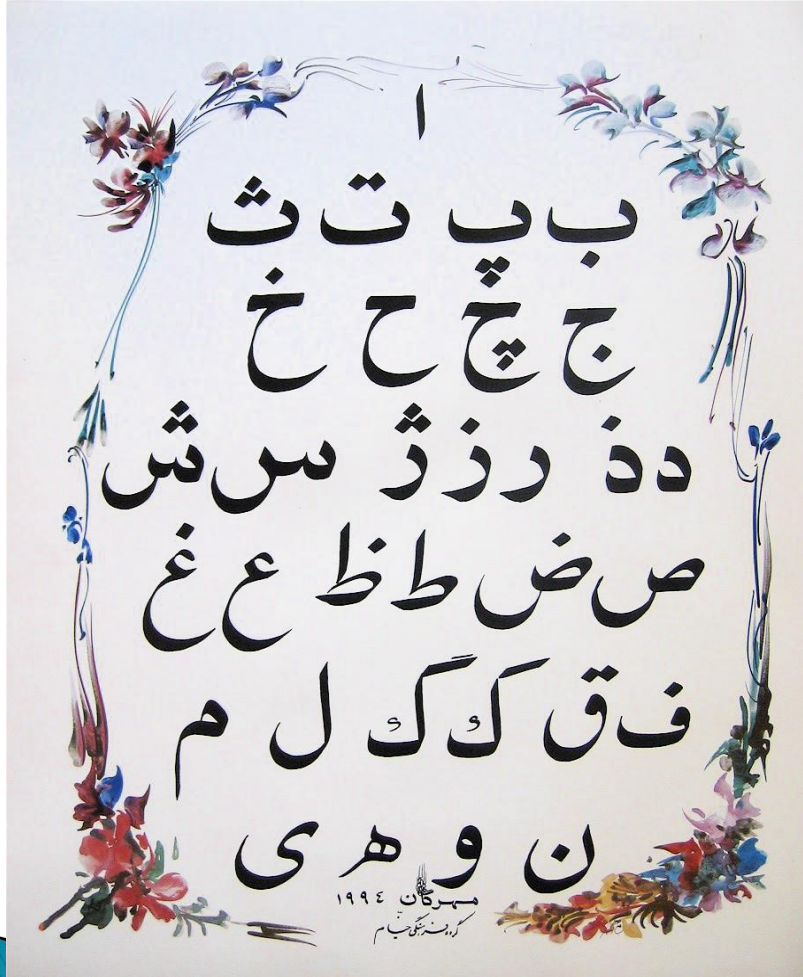 ا
ب پ ت ث
ج چ ح خ
د ذ ر ز ژ س ش
ص ض ط ظ ع غ
ف ق ك گ ل م
ن و ه ی
مهرگان ١٩٩٤
گروه فرهنگی جام